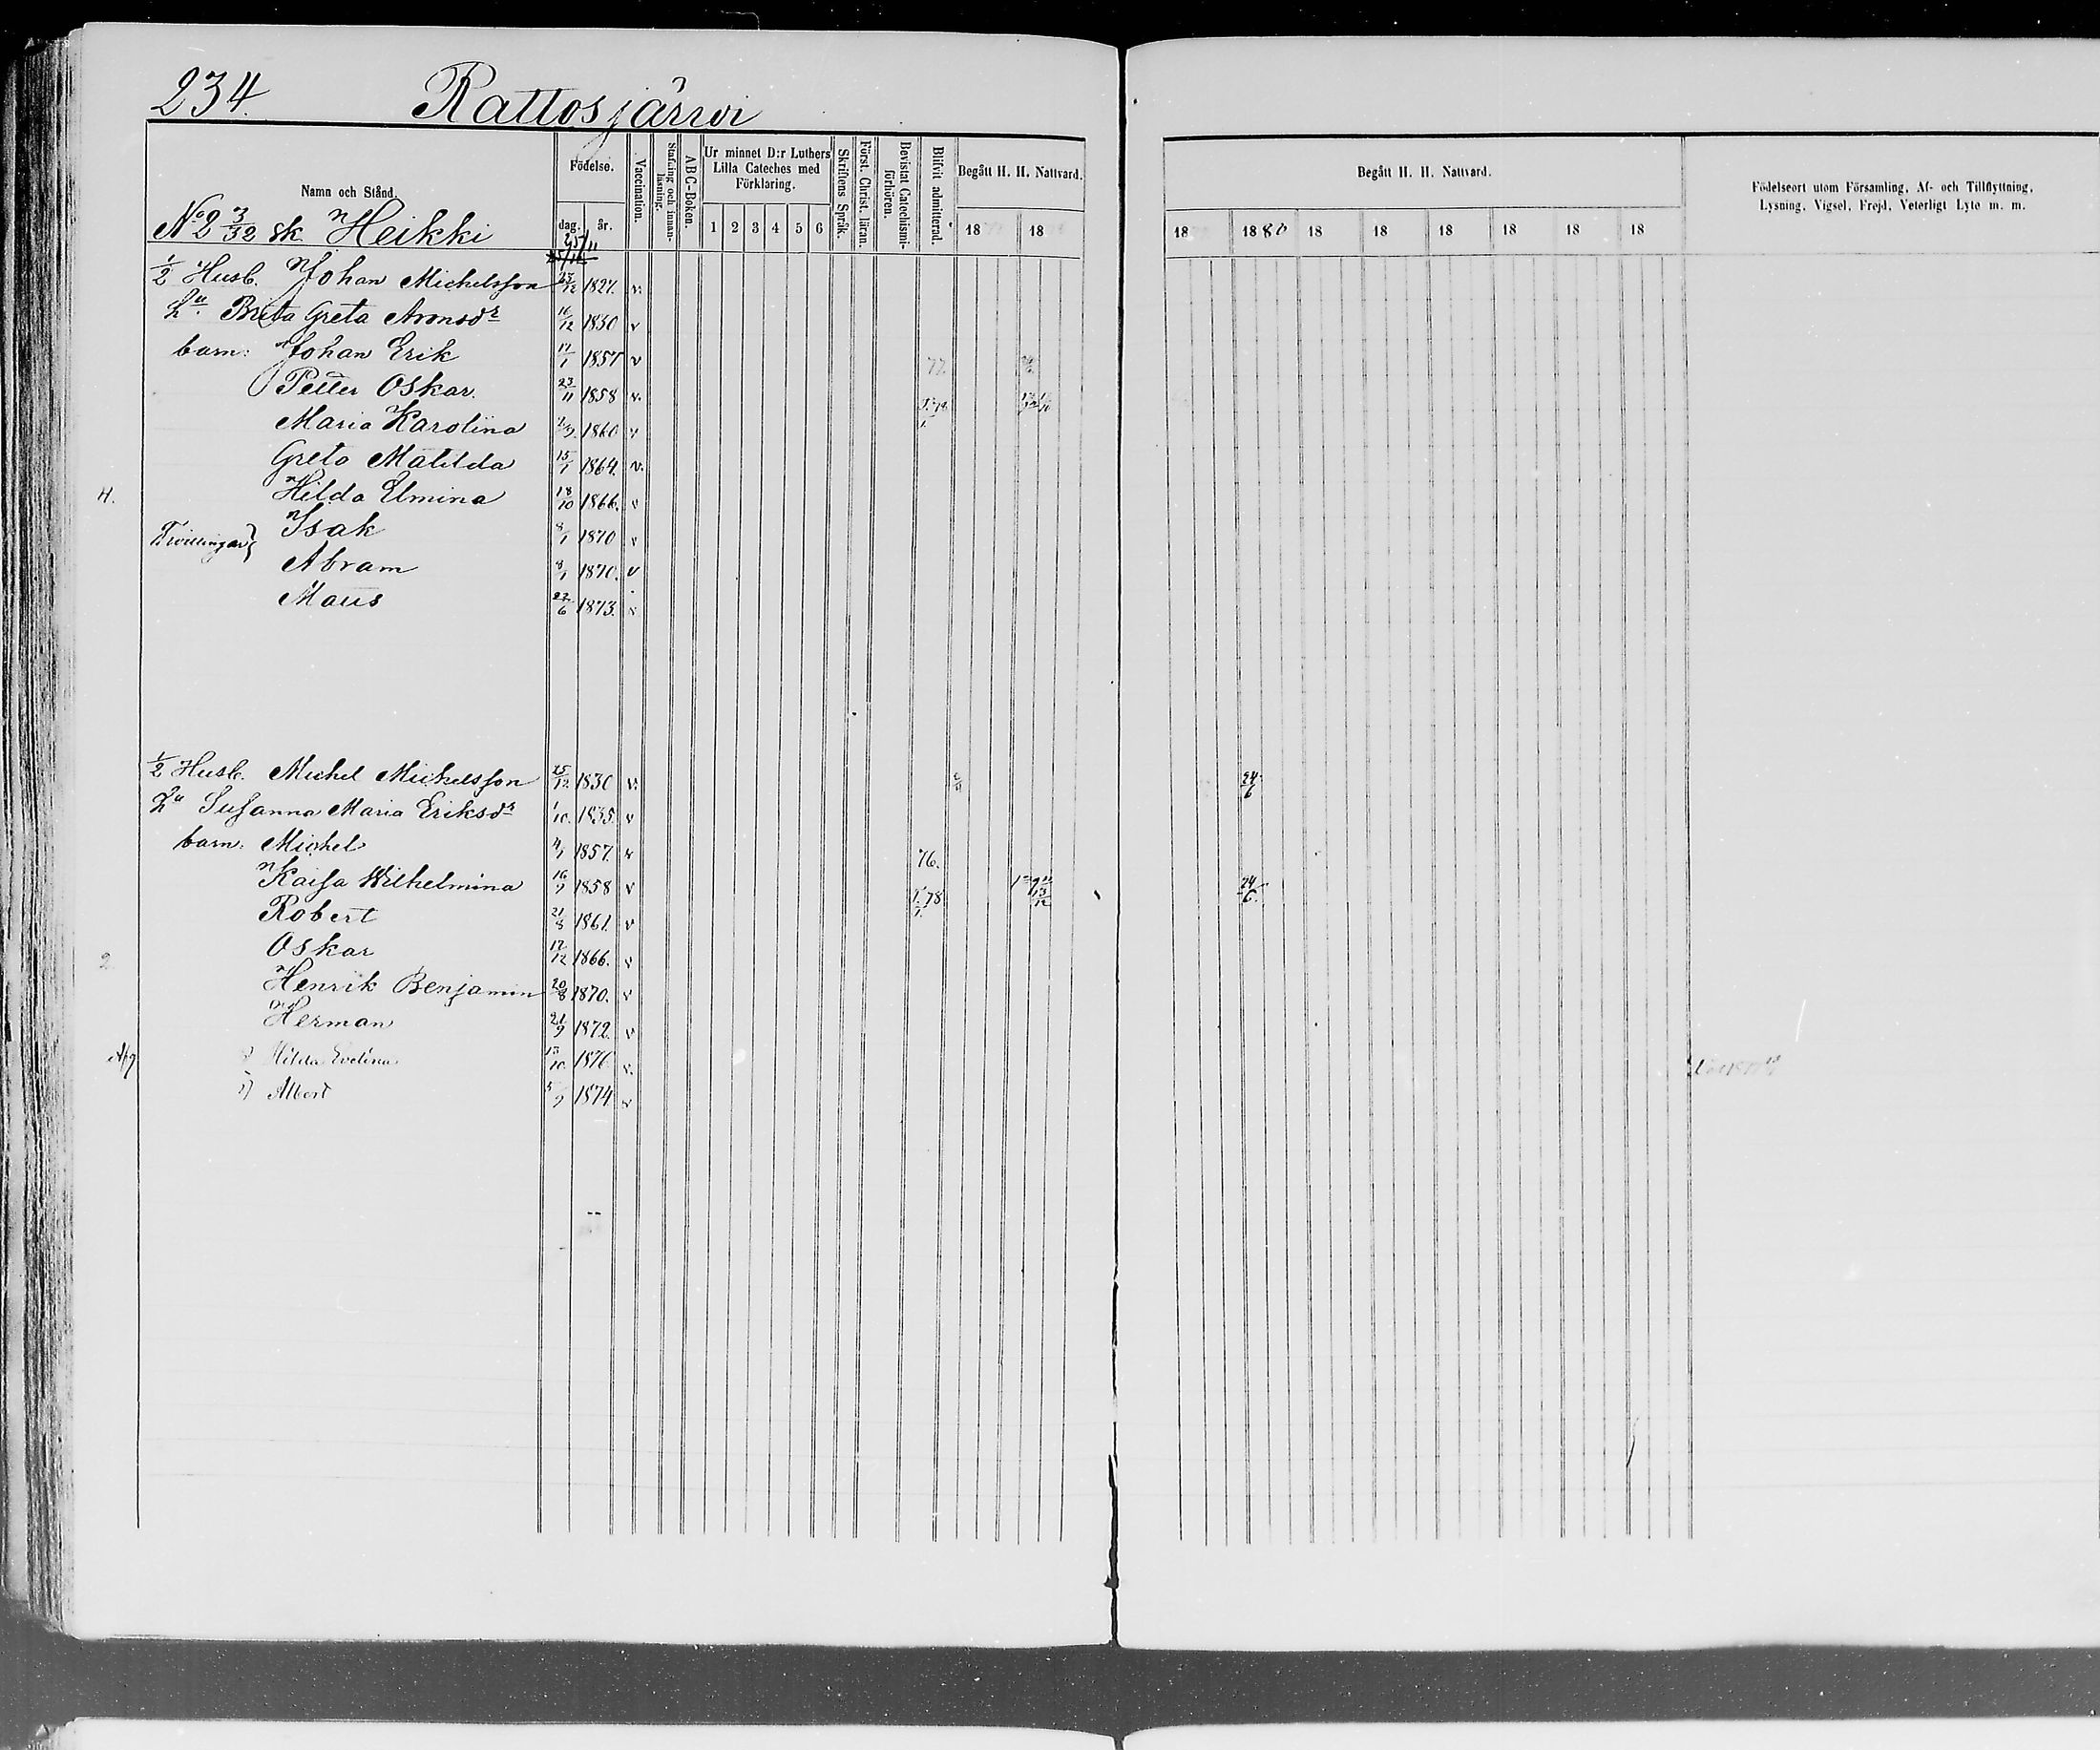 234. Rattosjärwi
Namn och Stånd.
Födelse.
dag. år.
Vaccination.
Stafning och innanläsning.
ABC-Boken.
Ur minnet D:r Luthers Lilla Cateches med Förklaring.
1 2 3 4 5 6
Skriftens Språk.
Först. Christ. läran.
Bevistat Catechismiförhören.
Blifvit admitterad.
Begått H. H. Nattvard.
18 18
Begått H. H. Nattvard.
18 1880 18 18 18 18 18 18
Födelseort utom Församling, Af- och Tillflyttning,
Lysning, Vigsel, Frejd, Veterligt Lyte m. m.
No 2 3/32 sk. Heikki
1/2 Husb. Johan Michelsson 25/11 1827. v.
Hu. Brita Greta Aronsdr 16/12 1830 v
barn: Johan Erik 17/1 1857 v 77.
Petter Oskar. 23/11 1858 v.
Maria Karolina 2/9. 1860 v
Greta Matilda 15/1 1864. v.
4. Hilda Elmina 18/10 1866. v
Twillingar { Isak 8/1 1870 v
Abram 8/1 1870. v
Maus 22/6 1873. v
1/2 Husb. Michel Michelsson 25/12. 1830 v. 24/6
Hu Susanna Maria Eriksdr 1/10. 1835. v
barn: Michel 4/1 1857. v 76.
Kaisa Wilhelmina 16/9 1858 v 78 24/6.
Robert 21/8 1861. v
2 Oskar 17/12 1866. v
Henrik Benjamin 20/8 1870. v
Herman 21/9 1872. v
Hilda Evelina 13/10. 1876 v.
Albert 5/9 1874 v